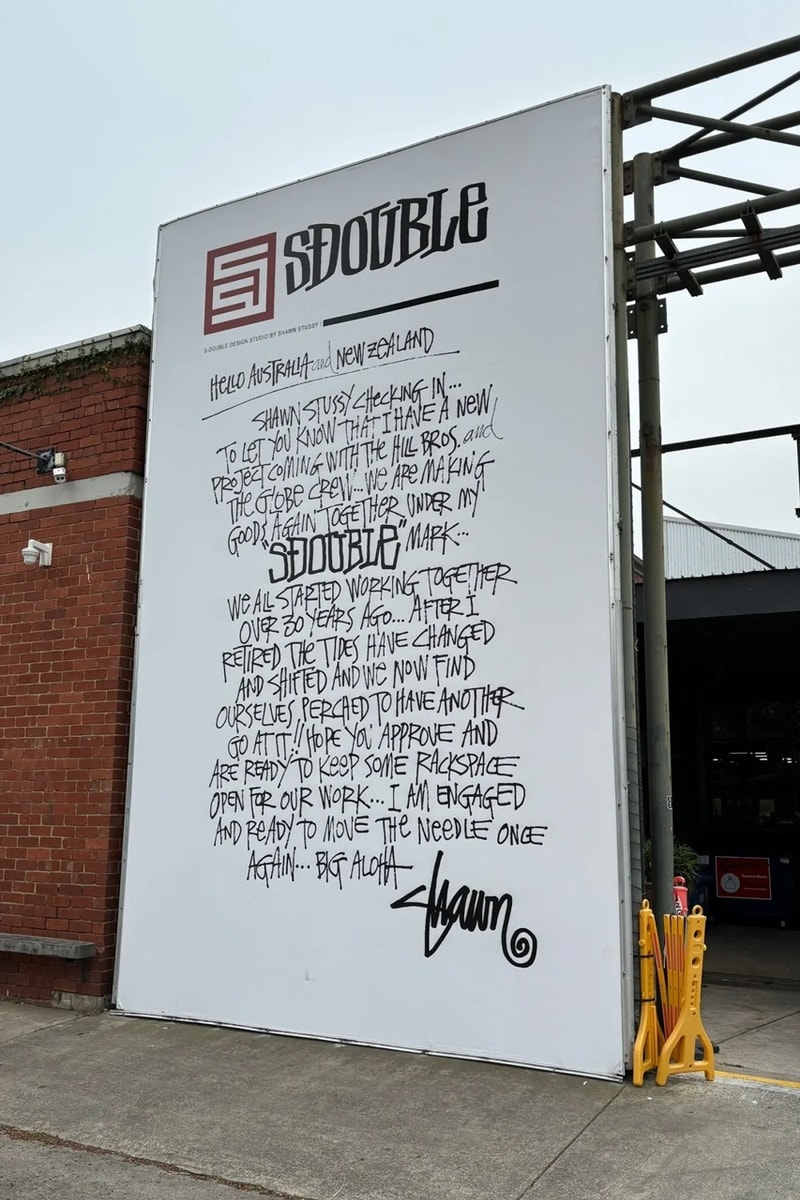 SDOUBLE
S-DOUBLE DESIGN STUDIO BY SHAWN STUSSY
HELLO AUSTRALIA and NEW ZEALAND
SHAWN STUSSY CHECKING IN...
TO LET YOU KNOW THAT I HAVE A NEW
PROJECT COMING WITH THE HILL BROS. and
THE GLOBE CREW... WE ARE MAKING
GOODS AGAIN TOGETHER UNDER MY
"SDOUBLE" MARK...
WE ALL STARTED WORKING TOGETHER
OVER 30 YEARS AGO... AFTER I
RETIRED THE TIDES HAVE CHANGED
AND SHIFTED AND WE NOW FIND
OURSELVES PERCHED TO HAVE ANOTHER
GO AT IT!! HOPE YOU APPROVE AND
ARE READY TO KEEP SOME RACKSPACE
OPEN FOR OUR WORK... I AM ENGAGED
AND READY TO MOVE THE NEEDLE ONCE
AGAIN... BIG ALOHA
Shawn